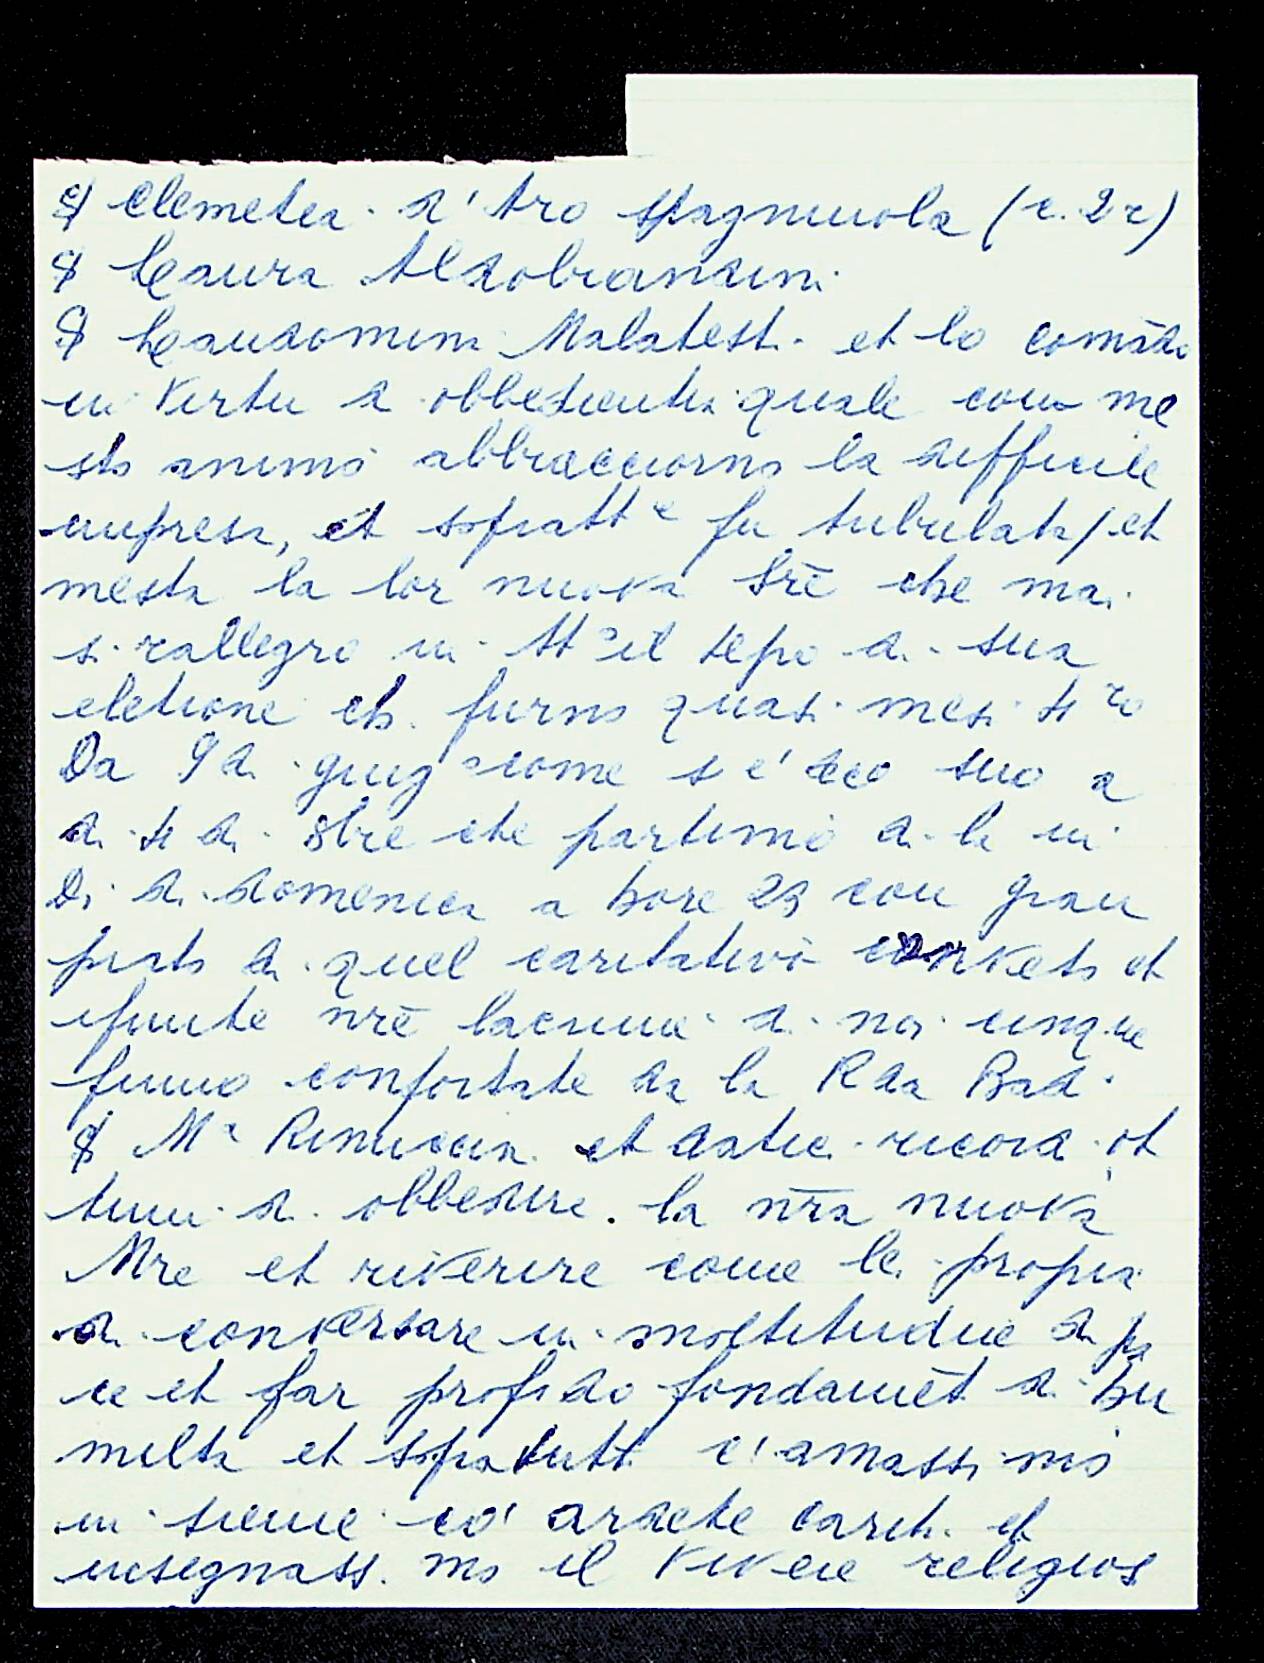 S. Clemetia d' Aro Spagnuola (c. 2r)
S. Laura Aldobrandini
S. Laudomini Malatest. et lo comādo
in virtu d obbedientia quale cou me
sto animo abbracciorno la difficile
impresa, et sopratt e fu tribulata / et
mesta la lor nuova Mrē che mai
si rallegro in tt° il tēpo di sua
eletione ch. furno quasi mesi 4 ro
Da 9 di giug° come s e' dco suo a
di 4 di 8bre che partimō di li in
Di di domenica a hore 23 con gran
piato di quel caritativō conveto et
ifinite nrē lacrime di noi cinque
fumo confortate da la Rda Bad.
S. Ma Rinuccin. et datici ricord. ot
timi di obbedire. la nrā nuova
Mre et riverire come le propia
di conversare in moltitudine di pa
ce et far profōdo fondamēt di hu
milta et sopratutt. c' amassi mō
in sieme co' ardete carit. et
insegnass. mo il vivere religios